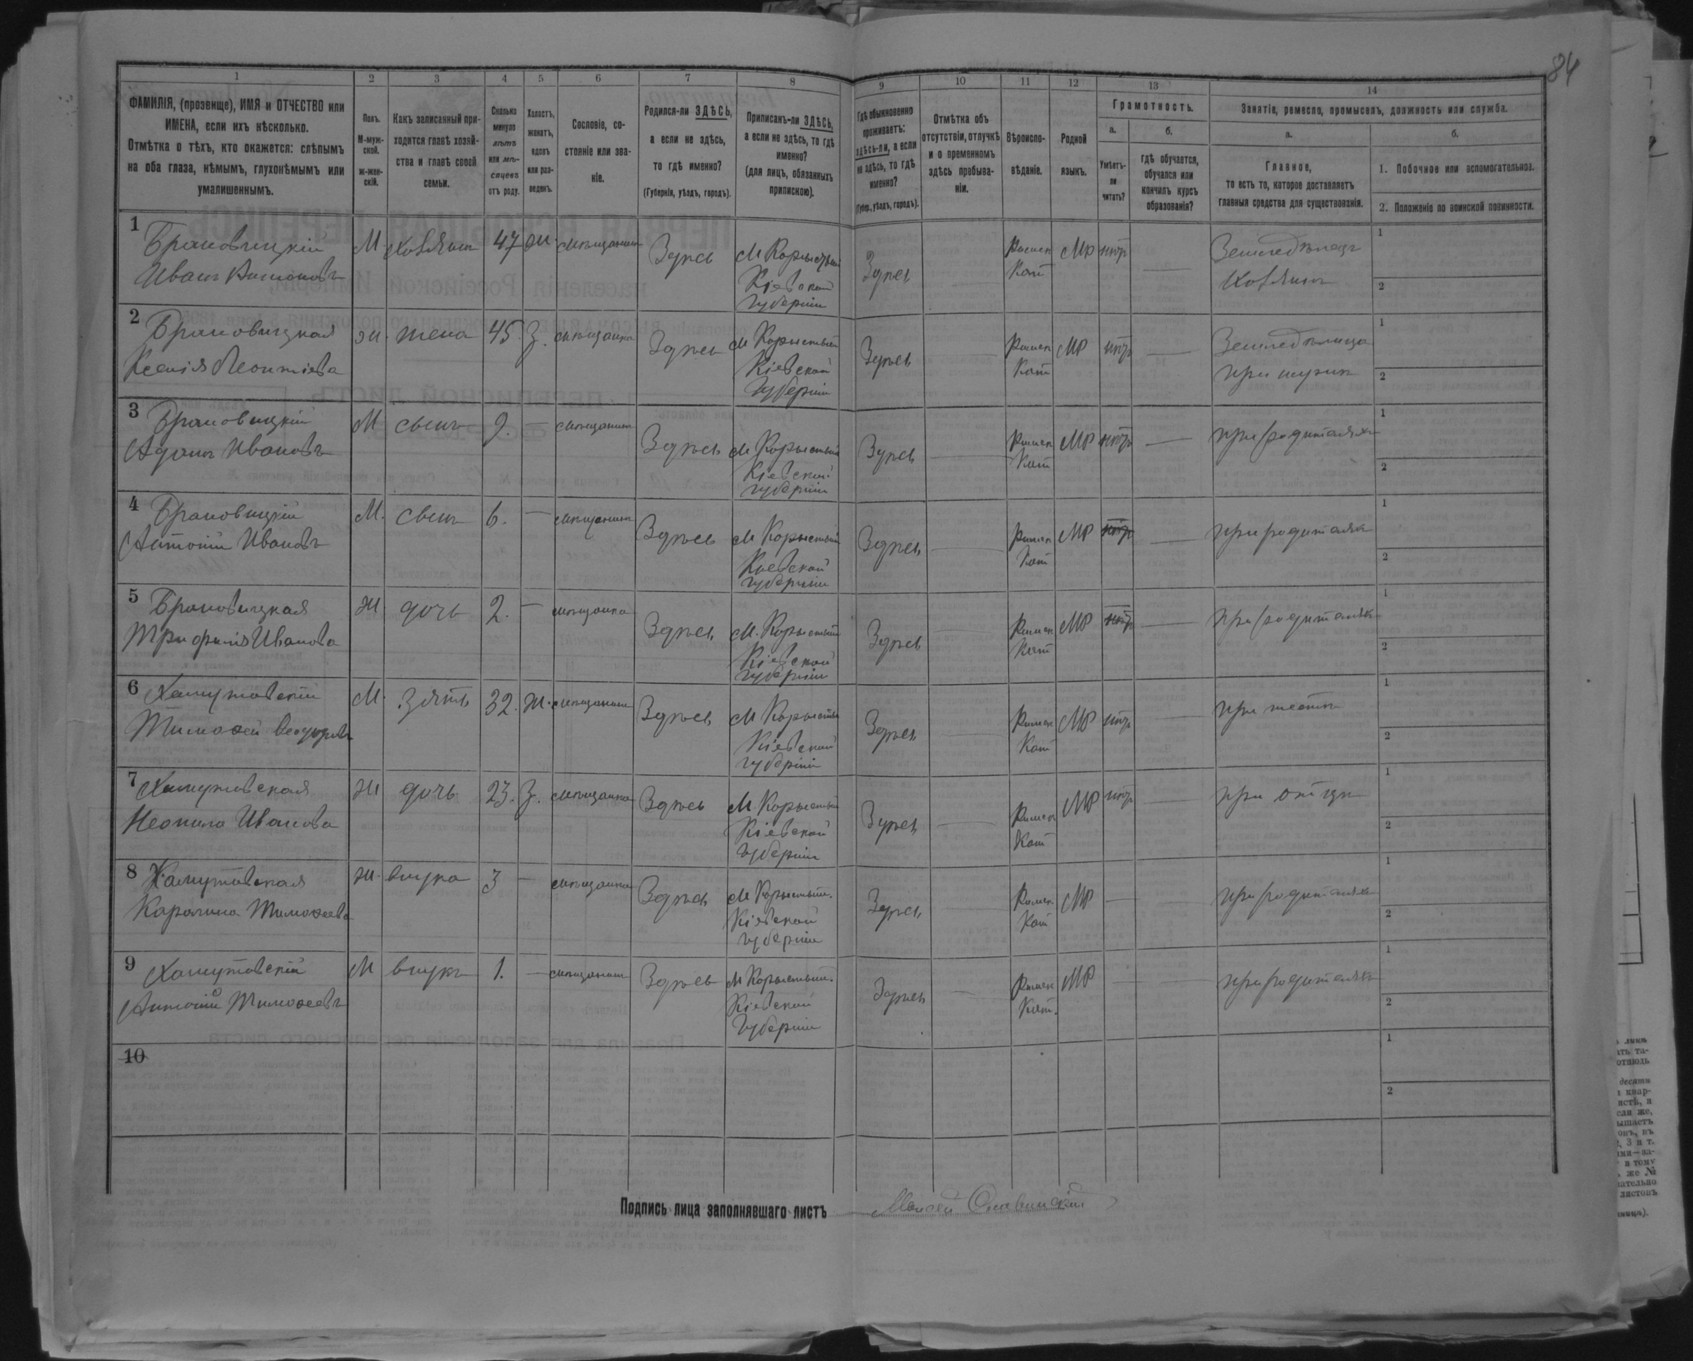 84
1 2 3 4 5 6 7 8 9 10 11 12 13 14
ФАМИЛІЯ, (прозвище), ИМЯ и ОТЧЕСТВО или
ИМЕНА, если ихъ нѣсколько.
Отмѣтка о тѣхъ, кто окажется: слѣпымъ
на оба глаза, нѣмымъ, глухонѣмымъ или
умалишеннымъ.
Полъ.
М-муж-
ской.
ж-жен-
скій.
Какъ записанный при-
ходится главѣ хозяй-
ства и главѣ своей
семьи.
Сколько
минуло
лѣтъ
или мѣ-
сяцевъ
отъ роду.
Холостъ,
женатъ,
вдовъ
или раз-
веденъ.
Сословіе, со-
стояніе или зва-
ніе.
Родился-ли ЗДѢСЬ,
а если не здѣсь,
то гдѣ именно?
(Губернія, уѣздъ, городъ).
Приписанъ-ли ЗДѢСЬ,
а если не здѣсь, то гдѣ
именно?
(для лицъ, обязанныхъ
припискою).
Гдѣ обыкновенно
проживаетъ:
здѣсь-ли, а если
не здѣсь, то гдѣ
именно?
(Губерн., уѣздъ, городъ).
Отмѣтка объ
отсутствіи, отлучкѣ
и о временномъ
здѣсь пребыва-
ніи.
Вѣроиспо-
вѣданіе.
Родной
языкъ.
Грамотность.
а.
Умѣетъ-
ли
читать?
б.
гдѣ обучается,
обучался или
кончилъ курсъ
образованія?
Занятіе, ремесло, промыселъ, должность или служба.
а.
Главное,
то есть то, которое доставляетъ
главныя средства для существованія.
б.
1. Побочное или вспомогательное.
2. Положеніе по воинской повинности.
1 Брановицкій М хозяинъ 47 ж. мѣщанинъ Здѣсь М Здѣсь Римск МР нѣтъ Земледѣлецъ 1
Иванъ Кіевской Кат Хозяинъ 2
губерніи
2 Брановицкая ж. жена 45 З. мѣщанка Здѣсь М Здѣсь Римск МР нѣтъ Земледѣлица 1
Ксенія Леонтіева Кіевской Кат при мужѣ 2
губерніи
3 Брановицкій М сынъ 9. — мѣщанинъ Здѣсь М Здѣсь Римск МР нѣтъ — при родителяхъ 1
Адамъ Ивановъ Кіевской Кат 2
губерніи
4 Брановицкій М. сынъ 6. — мѣщанинъ Здѣсь М Здѣсь Римск МР нѣтъ — при родителяхъ 1
Антоній Ивановъ Кіевской Кат 2
губерніи
5 Брановицкая Ж дочь 2. — мѣщанка Здѣсь М. Здѣсь Римск МР нѣтъ — при родителяхъ 1
Трифенія Иванова Кіевской Кат 2
губерніи
6 Хамутовскій М. зять 32. ж. мѣщанинъ Здѣсь М Здѣсь Римск МР нѣтъ — при тестѣ 1
Тимофей Кіевской Кат 2
губерніи
7 Хамутовская Ж дочь 23. З. мѣщанка Здѣсь М Здѣсь Римск МР нѣтъ — при отцѣ 1
Неонила Иванова Кіевской Кат 2
губерніи
8 Хамутовская Ж. внука 3 — мѣщанка Здѣсь М Здѣсь Римск МР — при родителяхъ 1
Каролина Тимофеева Кіевской Кат 2
губерніи
9 Хамутовскій М внукъ 1. — мѣщанинъ Здѣсь М Здѣсь Римск МР — при родителяхъ 1
Антоній Тимофеевъ Кіевской Кат. 2
губерніи
10 1
2
Подпись лица заполнявшаго листъ